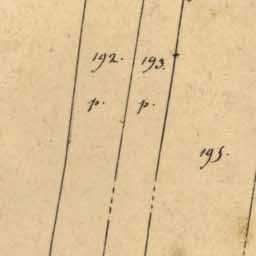 192. 193.
p. p.
195.